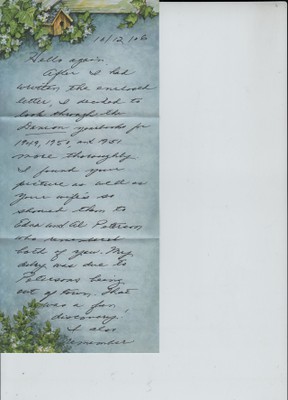 10/12/06
Hello again,
After I had
written the enclosed
letter, I decided to
look through the
Denison yearbooks for
1949, 1950, and 1951
more thoroughly.
I found your
picture as well as
your wife's so
showed them to
Edna and Al Peterson
who remembered
both of you. My
delay was due to
Petersons being
out of town. That
was a fun
discovery!
I also
remember